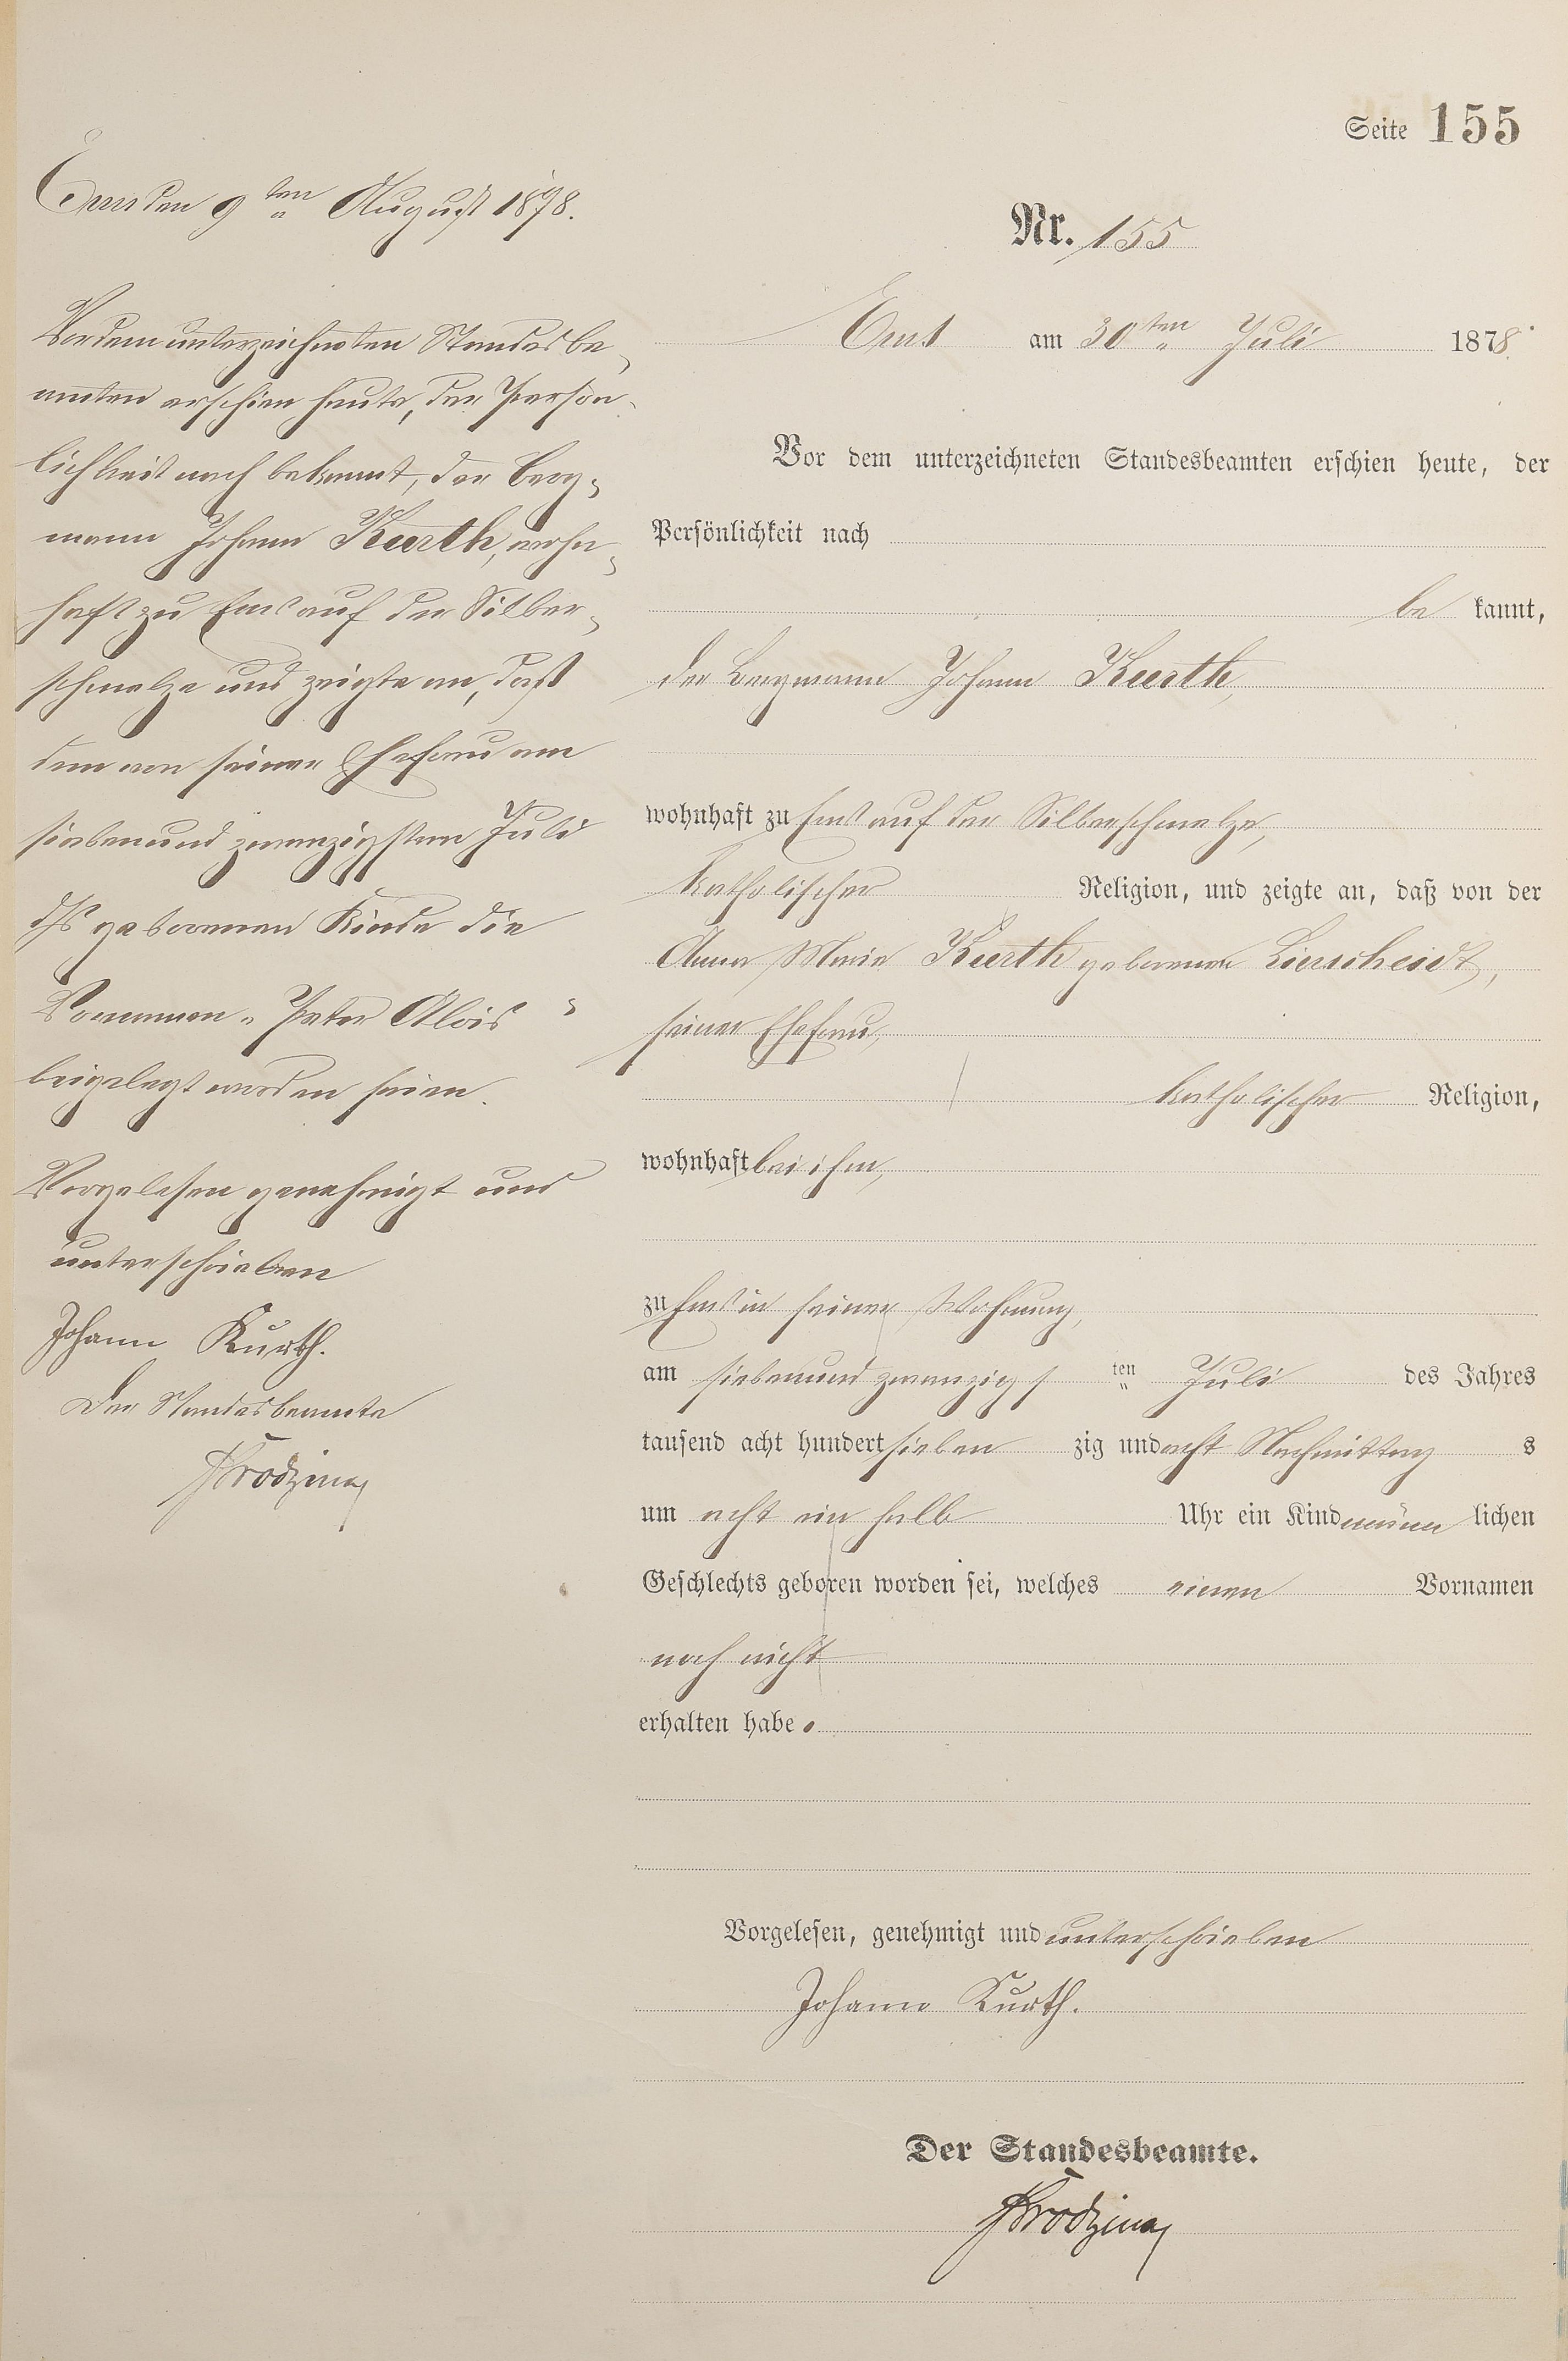 Seite 155
Ems den 9ten August 1878.
Vor dem unterzeichneten Standesbe-
amten erschien heute, der Persön-
lichkeit nach bekannt, der Berg-
mann Johann Kurth, wohn-
haft zu Ems auf der Silber-
schmelze und zeigte an, daß
dem von seiner Ehefrau am
siebenundzwanzigsten Juli
ds Js geborenen Kinde die
Vornamen „Peter Alois“
beigelegt worden seien.
Vorgelesen genehmigt und
unterschrieben
Johann Kurth.
Der Standesbeamte
Nr. 155
Ems am 30ten Juli 1878.
Vor dem unterzeichneten Standesbeamten erschien heute, der
Persönlichkeit nach
be kannt,
der Bergmann Johann Kurth,
wohnhaft zu Ems auf der Silberschmelze,
katholischer Religion, und zeigte an, daß von der
Anna Maria Kurth geborenen Lierscheidt,
seiner Ehefrau,
katholischer Religion,
wohnhaft bei ihm,
zu Ems in seiner Wohnung,
am siebenundzwanzigs ten Juli des Jahres
tausend acht hundert sieben zig und acht Nachmittag s
um acht ein halb Uhr ein Kind männ lichen
Geschlechts geboren worden sei, welches einen Vornamen
noch nicht
erhalten habe.
Vorgelesen, genehmigt und unterschrieben
Johann Kurth.
Der Standesbeamte.